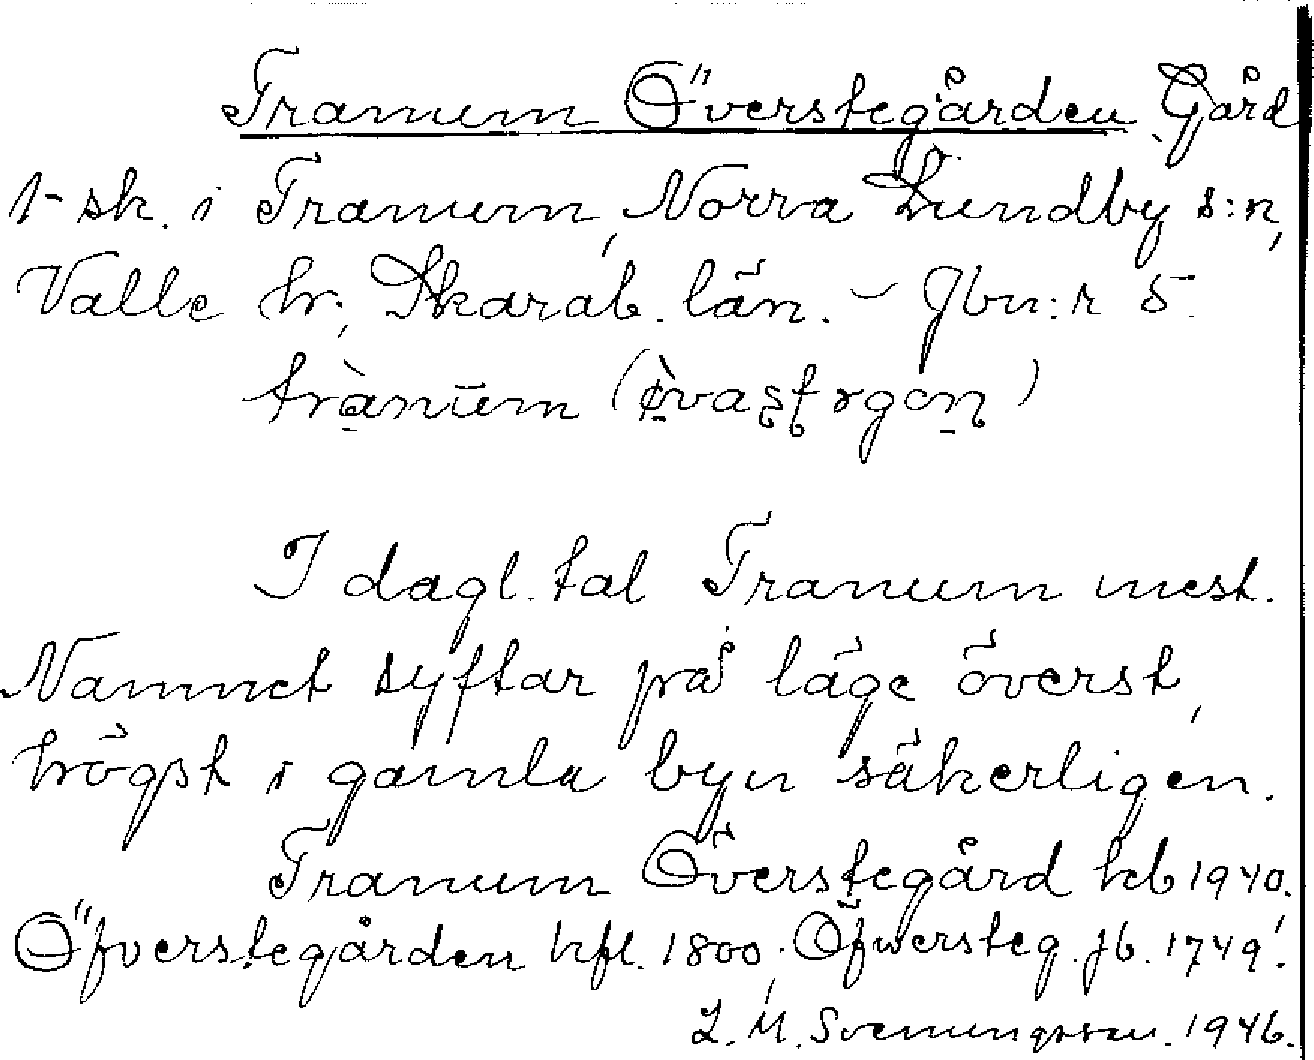 Tranum Överstegården Gård
1-sk. i Tranum, Norra Lundby s:n,
Valle hr; Skarab. län. - Jbn:r 5.
I dagl. tal Tranum mest.
Namnet syftar på läge överst,
högst i gamla byn säkerligen.
Tranum Överstegård kb 1940.
Öfverstegården hfl. 1800; Öfwersteg. jb. 1749!
L. M. Svenungsson. 1946.